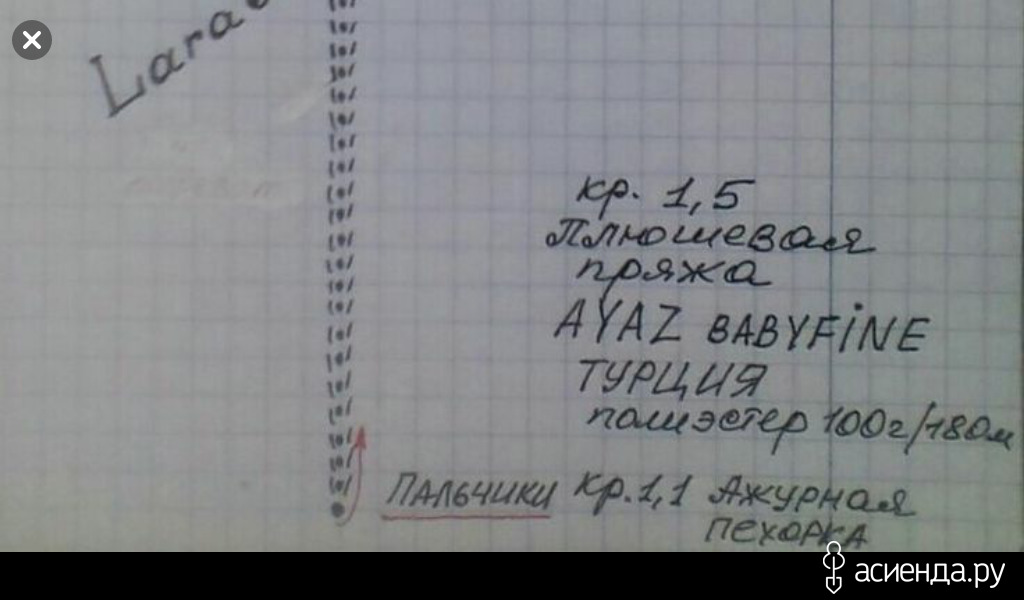 кр. 1,5
Плюшевая
пряжа
AYAZ BABYFINE
ТУРЦИЯ
полиэстер 100г/180м
ПАЛЬЧИКИ кр. 1,1 Ажурная
ПЕХОРКА
асиенда.ру